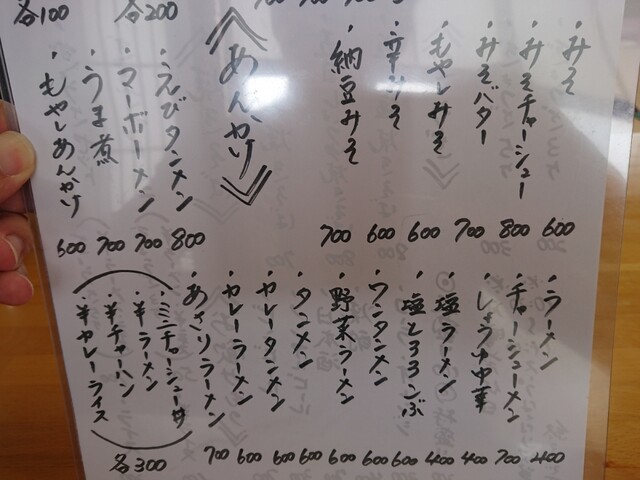 各200
各100
・みそ 600
・みそチャーシュー 800
・みそバター 700
・もやしみそ 600
・辛みそ 600
・納豆みそ 700
《あんかけ》
・えびタンメン 800
・マーボーメン 700
・うま煮 700
・もやしあんかけ 600
・ラーメン 400
・チャーシューメン 700
・しょうゆ中華 400
・塩ラーメン 400
・塩とろろこんぶ 600
・ワンタンメン 600
・野菜ラーメン 600
・タンメン 600
・カレータンメン 600
・カレーラーメン 600
・あさりラーメン 700
(・ミニチャーシュー丼
・半ラーメン
・半チャーハン
・半カレーライス)
各300